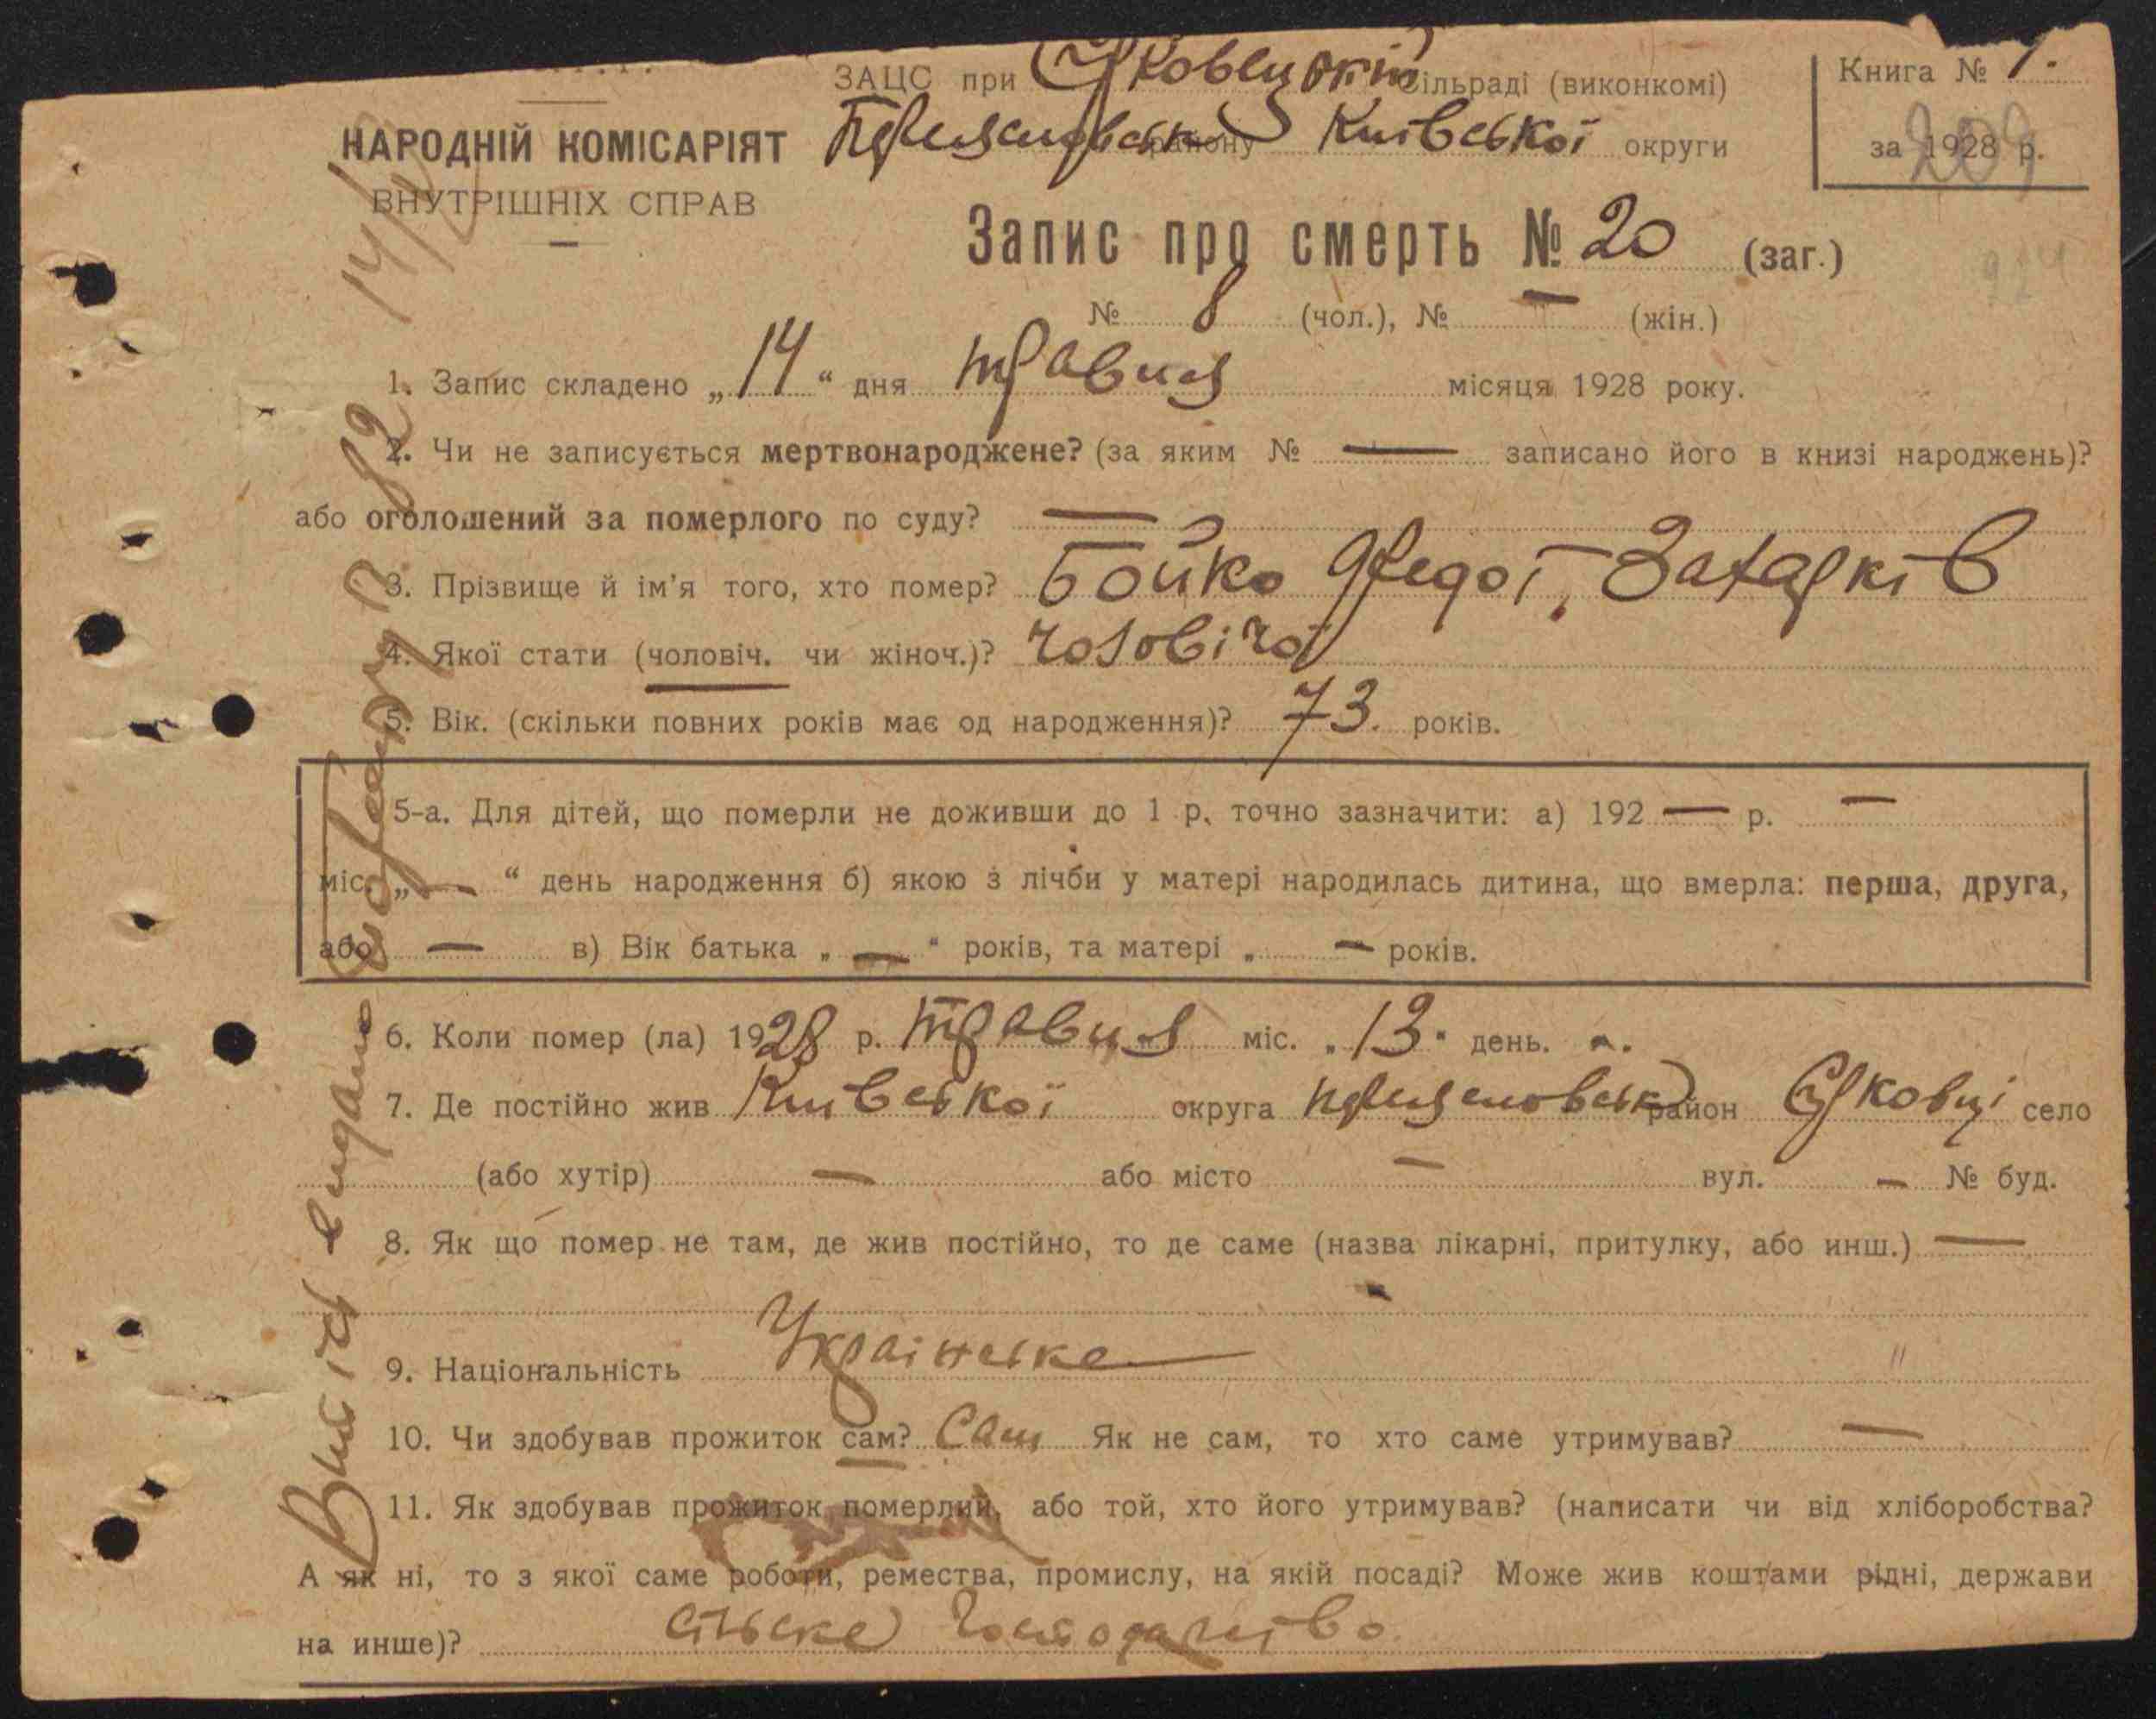 ЗАЦС при Єрковецькій сільраді (виконкомі)
Книга № 1.
НАРОДНІЙ КОМІСАРІЯТ
району Київської округи
за 1928 р.
209
ВНУТРІШНІХ СПРАВ
Запис про смерть № 20 (заг.)
№ 8 (чол.), № — (жін.)
1. Запис складено „14“ дня травня місяця 1928 року.
2. Чи не записується мертвонароджене? (за яким № — записано його в книзі народжень)?
або оголошений за померлого по суду? —
3. Прізвище й ім'я того, хто помер? Бойко Захарків
4. Якої стати (чоловіч. чи жіноч.)? чоловічої
5. Вік. (скільки повних років має од народження)? 73. років.
5-а. Для дітей, що померли не доживши до 1 р. точно зазначити: а) 192 — р. —
міс. „ — “ день народження б) якою з лічби у матері народилась дитина, що вмерла: перша, друга,
або — в) Вік батька „ — “ років, та матері „ — років.
6. Коли помер (ла) 1928 р. травня міс. „13“ день.
7. Де постійно жив Київської округа район Єрковці село
(або хутір) — або місто — вул. — № буд.
8. Як що помер не там, де жив постійно, то де саме (назва лікарні, притулку, або инш.) —
9. Національність Українське
10. Чи здобував прожиток сам? Сам Як не сам, то хто саме утримував? —
11. Як здобував прожиток померлий, або той, хто його утримував? (написати чи від хліборобства?
А як ні, то з якої саме роботи, ремества, промислу, на якій посаді? Може жив коштами рідні, держави
на инше)? сільске господарство
Витяг видано
82